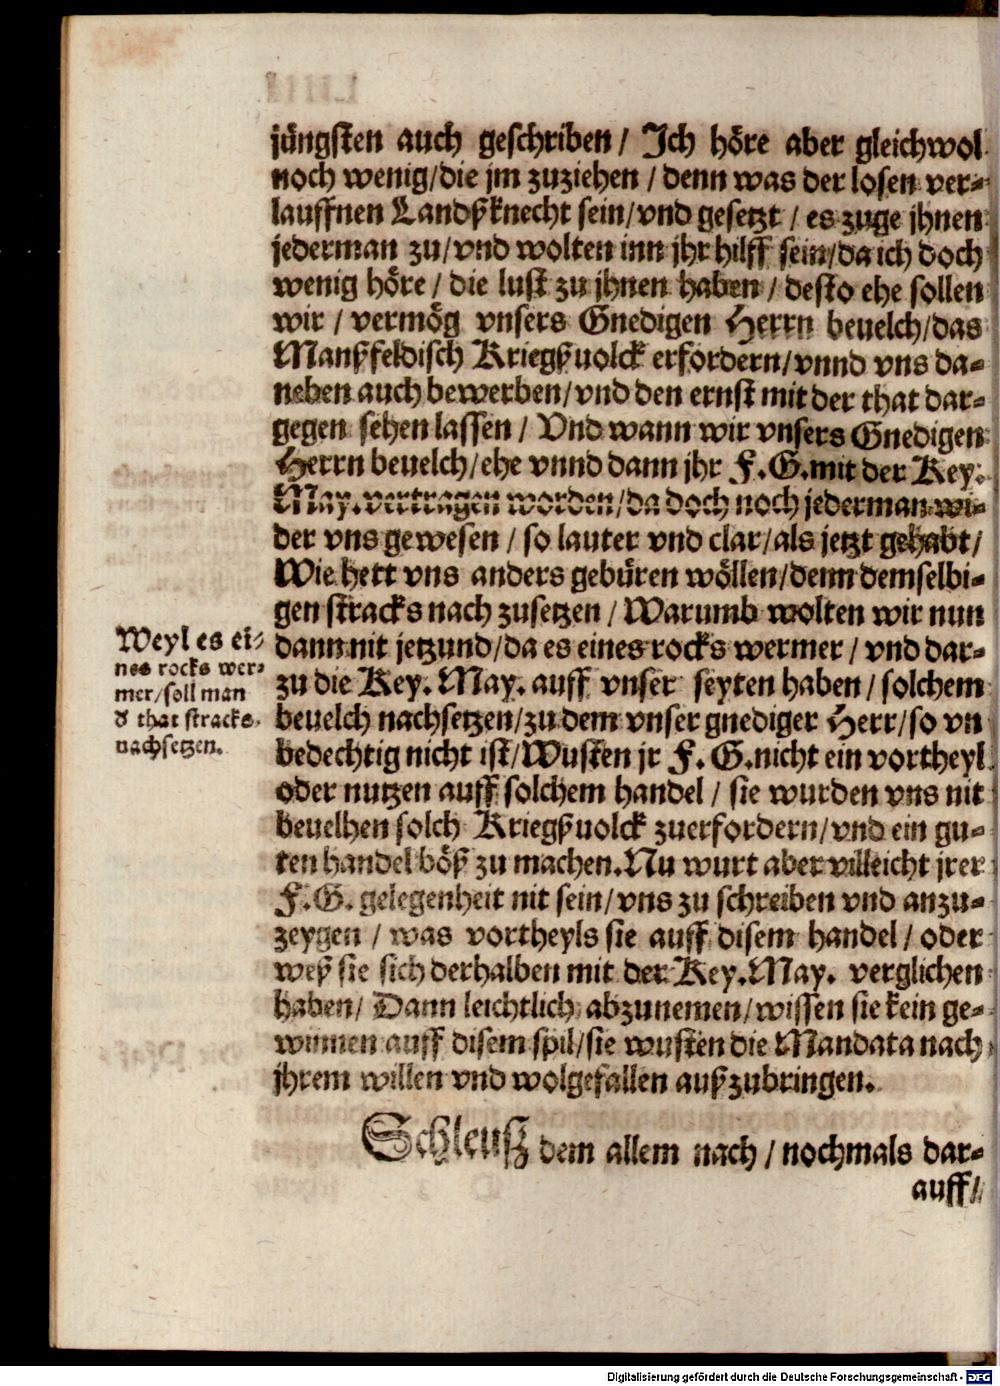 jüngsten auch geschriben / Ich höre aber gleichwol
noch wenig/die jm zuziehen / denn was der losen ver-
lauffnen Landßknecht sein/vnd gesetzt / es zuge jhnen
jederman zu/vnd wolten inn jhr hilff sein/da ich doch
wenig höre / die lust zu jhnen haben / desto ehe sollen
wir / vermög vnsers Gnedigen Herrn beuelch/das
Manßfeldisch Kriegßuolck erfordern/vnnd vns da-
neben auch bewerben/vnd den ernst mit der that dar-
gegen sehen lassen / Vnd wann wir vnsers Gnedigen
Herrn beuelch/ehe vnnd dann jhr F.G.mit der Key.
May.vertragen worden/da doch noch jederman wi-
der vns gewesen / so lauter vnd clar/als jetzt gehabt/
Wie hett vns anders gebüren wöllen/denn demselbi-
gen stracks nach zusetzen / Warumb wolten wir nun
dann nit jetzund/da es eines rocks wermer / vnd dar-
zu die Key. May. auff vnser seyten haben / solchem
beuelch nachsetzen/zu dem vnser gnediger Herr/so vn
bedechtig nicht ist/Wusten jr F. G.nicht ein vortheyl
oder nutzen auff solchem handel / sie wurden vns nit
beuelhen solch Kriegßuolck zuerfordern/vnd ein gu-
ten handel böß zu machen.Nu wurt aber villeicht jrer
F.G. gelegenheit nit sein/vns zu schreiben vnd anzu-
zeygen / was vortheyls sie auff disem handel / oder
weß sie sich derhalben mit der Key.May. verglichen
haben/ Dann leichtlich abzunemen/wissen sie kein ge-
winnen auff disem spil/sie wusten die Mandata nach
jhrem willen vnd wolgefallen außzubringen.
Schleusz dem allem nach / nochmals dar-
auff/
Weyl es ei-
nes rocks wer-
mer/soll man
d that stracks
nachsetzen.
Digitalisierung gefördert durch die Deutsche Forschungsgemeinschaft - DFG